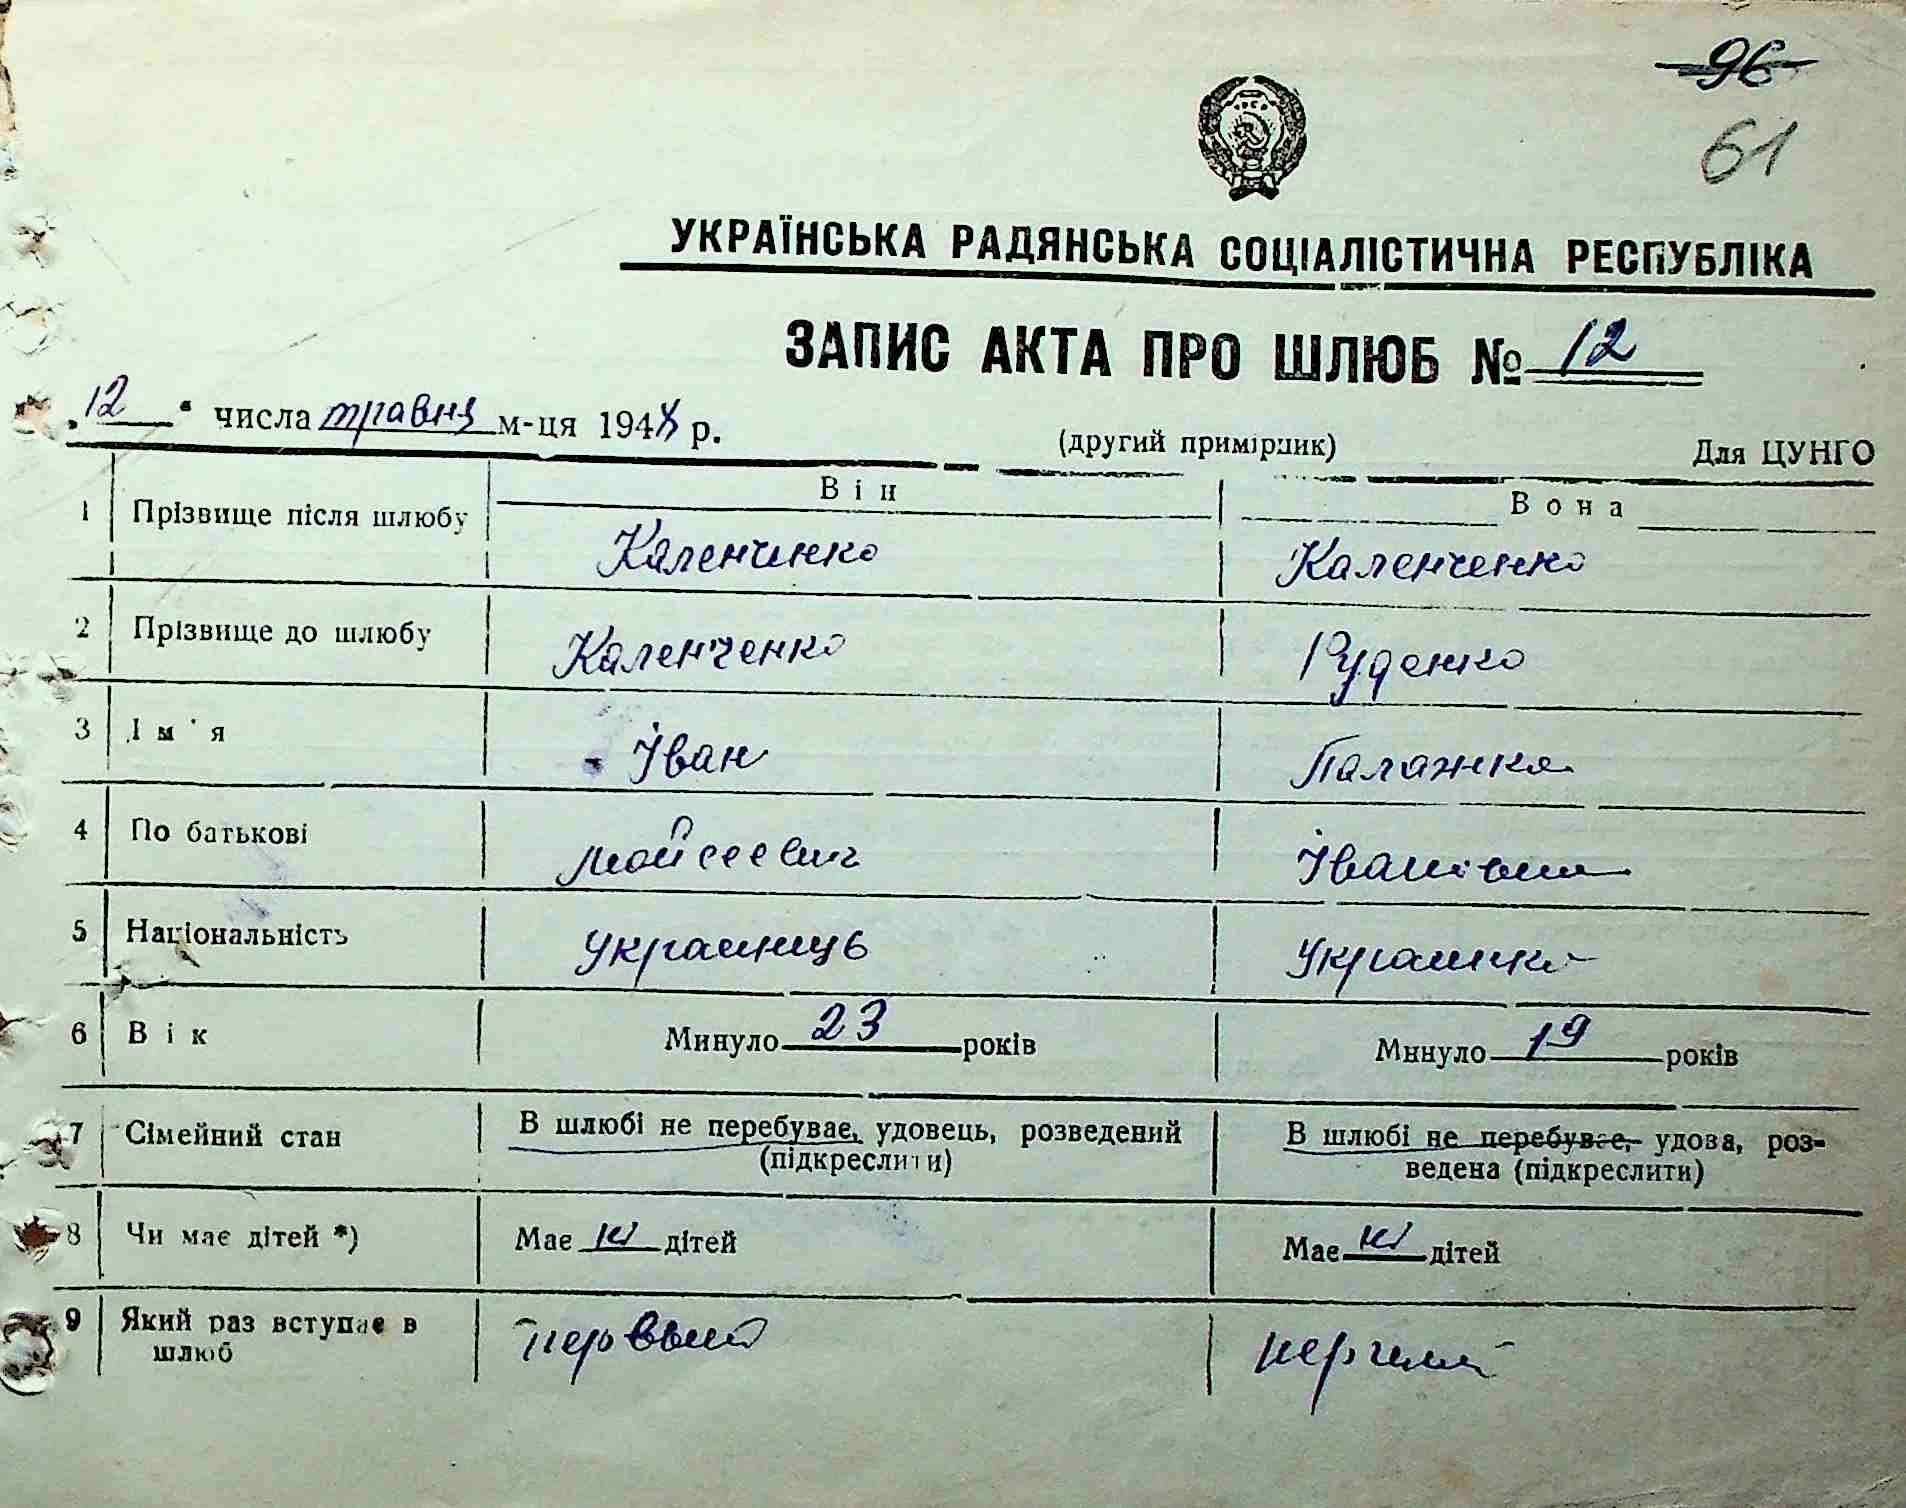 96
61
УКРАЇНСЬКА РАДЯНСЬКА СОЦІАЛІСТИЧНА РЕСПУБЛІКА
ЗАПИС АКТА ПРО ШЛЮБ № 12
„12“ числа травня м-ця 1948 р.
(другий примірник) Для ЦУНГО
Він Вона
1 Прізвище після шлюбу Каленченко Каленченко
2 Прізвище до шлюбу Каленченко Руденко
3 Ім'я Іван Палажка
4 По батькові Мойсеевич Іванівна
5 Національність Українець Українка
6 Вік Минуло 23 років Минуло 19 років
7 Сімейний стан В шлюбі не перебуває, удовець, розведений (підкреслити) В шлюбі не перебуває, удова, роз-
ведена (підкреслити)
8 Чи має дітей *) Має ні дітей Має ні дітей
9 Який раз вступає в шлюб первый перший